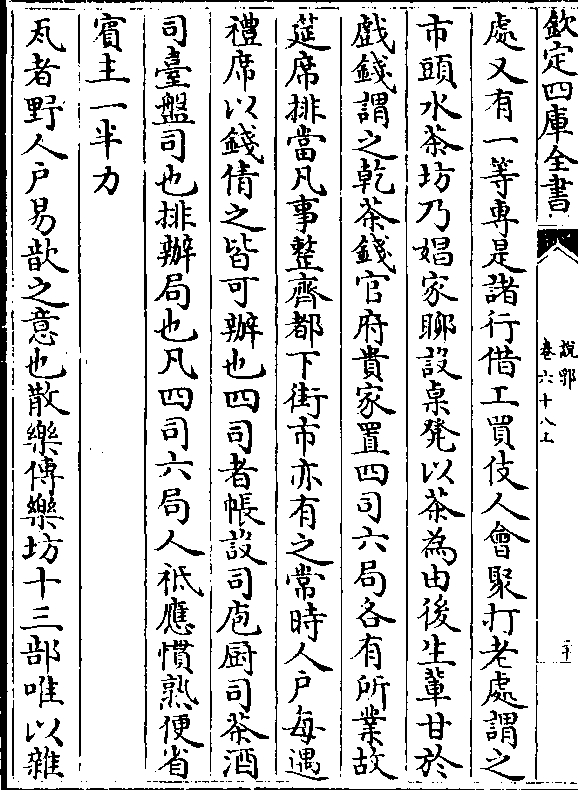 欽定四庫全書
說郛
卷六十八上
二十
處又有一等專是諸行借工買伎人會聚打老處謂之
市頭水茶坊乃娼家聊設桌凳以茶為由後生輩甘於
戲錢謂之乾茶錢官府貴家置四司六局各有所業故
筵席排當凡事整齊都下街市亦有之常時人户每遇
禮席以錢倩之皆可辦也四司者帳設司庖厨司茶酒
司臺盤司也排辦局也凡四司六局人祗應慣熟便省
賓主一半力
瓦者野人户易歆之意也散樂傳樂坊十三部唯以雜